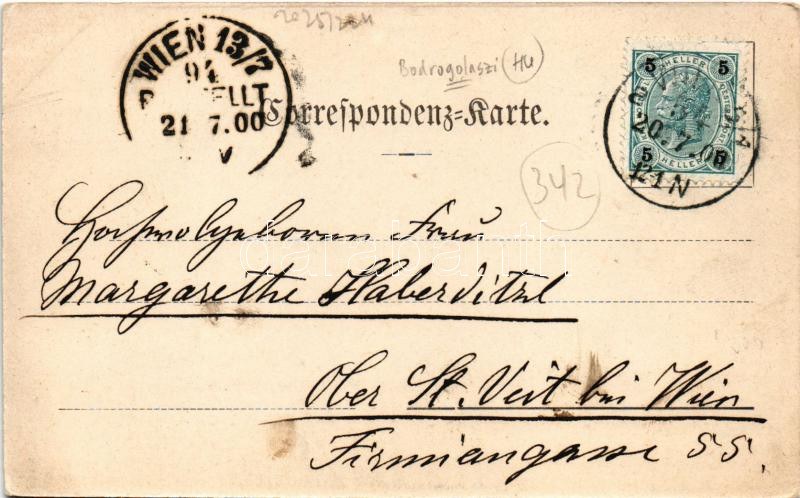 WIEN 13/7
21 7.00
Bodrogolaszi (HU)
Correspondenz-Karte.
5 5
HELLER
5 5
HELLER
20.7.00
12-1 N
342
Hochwolgeboren Frau
Margarethe Haberditzl
darabanth
Ober St. Veit bei Wien
Firmiangasse 55.